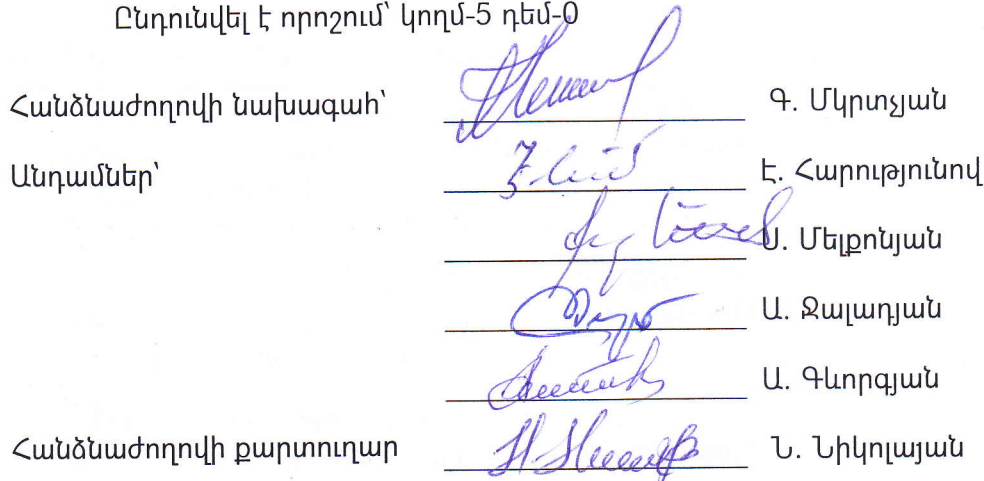 Ընդունվել է որոշում՝ կողմ-5 դեմ-0
Հանձնաժողովի նախագահ՝ Գ. Մկրտչյան
Անդամներ՝ Է. Հարությունով
Մելքոնյան
Ա. Ջալադյան
Ա. Գևորգյան
Հանձնաժողովի քարտուղար Ն. Նիկոլայան